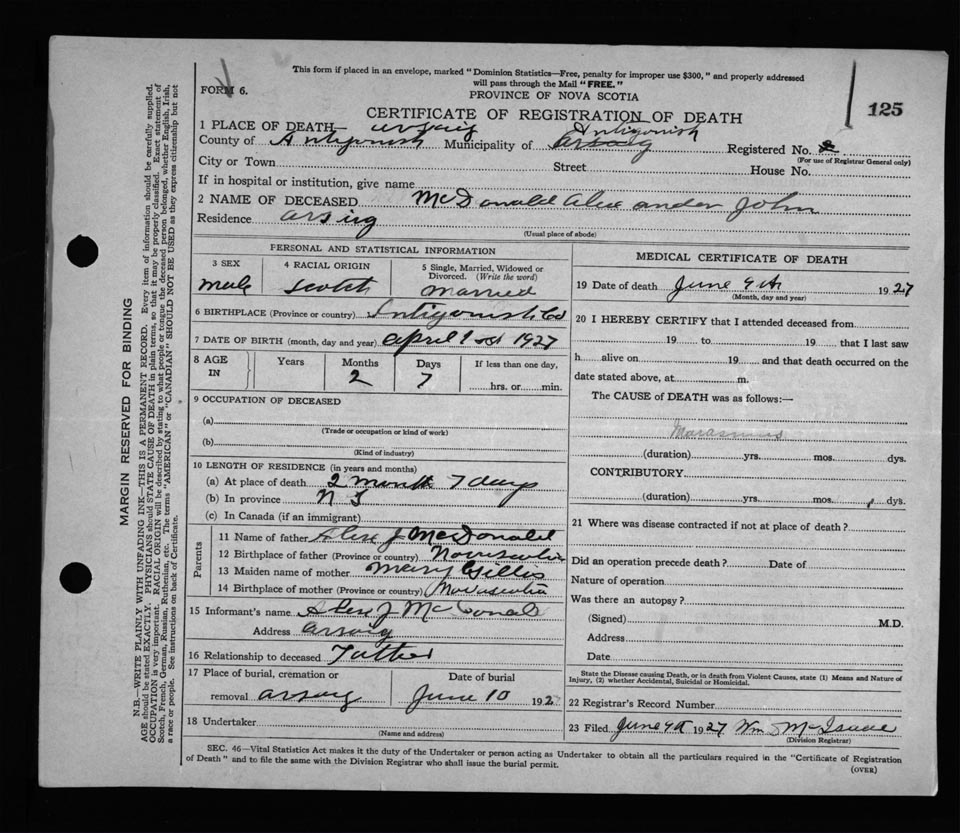 This form if placed in an envelope, marked "Dominion Statistics—Free, penalty for improper use $300," and properly addressed
will pass through the Mail "FREE."
FORM 6.
PROVINCE OF NOVA SCOTIA
125
CERTIFICATE OF REGISTRATION OF DEATH
1 PLACE OF DEATH— arsaig Antigonish
County of Antigonish Municipality of arsaig Registered No. 2
(For use of Registrar General only)
City or Town Street House No.
If in hospital or institution, give name
2 NAME OF DECEASED McDonald Alexander John
Residence arsaig
(Usual place of abode)
PERSONAL AND STATISTICAL INFORMATION
3 SEX 4 RACIAL ORIGIN 5 Single, Married, Widowed or
Divorced. (Write the word)
male Scotch married
6 BIRTHPLACE (Province or country) Antigonish Co
7 DATE OF BIRTH (month, day and year) april 1st 1927
8 AGE IN Years Months Days If less than one day,
2 7 hrs. or min.
9 OCCUPATION OF DECEASED
(a)
(Trade or occupation or kind of work)
(b)
(Kind of industry)
10 LENGTH OF RESIDENCE (in years and months)
(a) At place of death 2 month 7 days
(b) In province N S
(c) In Canada (if an immigrant)
Parents
11 Name of father Alex J McDonald
12 Birthplace of father (Province or country) Novascotia
13 Maiden name of mother Mary Gillis
14 Birthplace of mother (Province or country) Novascotia
15 Informant's name Alex J McDonald
Address arsaig
16 Relationship to deceased Father
17 Place of burial, cremation or Date of burial
removal arsaig June 10 192
18 Undertaker
(Name and address)
MEDICAL CERTIFICATE OF DEATH
19 Date of death June 9th 1927
(Month, day and year)
20 I HEREBY CERTIFY that I attended deceased from
19 to 19 that I last saw
h alive on 19 and that death occurred on the
date stated above, at m.
The CAUSE of DEATH was as follows:—
Marasmus
(duration) yrs. mos. dys.
CONTRIBUTORY.
(duration) yrs. mos. dys.
21 Where was disease contracted if not at place of death?
Did an operation precede death? Date of
Nature of operation
Was there an autopsy?
(Signed) M.D.
Address
Date
State the Disease causing Death, or in death from Violent Causes, state (1) Means and Nature of
Injury, (2) whether Accidental, Suicidal or Homicidal.
22 Registrar's Record Number
23 Filed June 9th 1927 Wm J McIsaac
(Division Registrar)
SEC. 46—Vital Statistics Act makes it the duty of the Undertaker or person acting as Undertaker to obtain all the particulars required in the "Certificate of Registration
of Death" and to file the same with the Division Registrar who shall issue the burial permit.
(OVER)
MARGIN RESERVED FOR BINDING
N.B.—WRITE PLAINLY WITH UNFADING INK—THIS IS A PERMANENT RECORD. Every item of information should be carefully supplied.
AGE should be stated EXACTLY. PHYSICIANS should STATE CAUSE OF DEATH in plain terms, so that it may be properly classified. Exact statement of
OCCUPATION is very important. RACIAL ORIGIN will be described by stating to what people or tongue the deceased person belonged, whether English, Irish,
Scotch, French, German, Russian, Ruthenian, etc. The terms "AMERICAN" or "CANADIAN" SHOULD NOT BE USED as they express citizenship but not
a race or people. See instructions on back of Certificate.